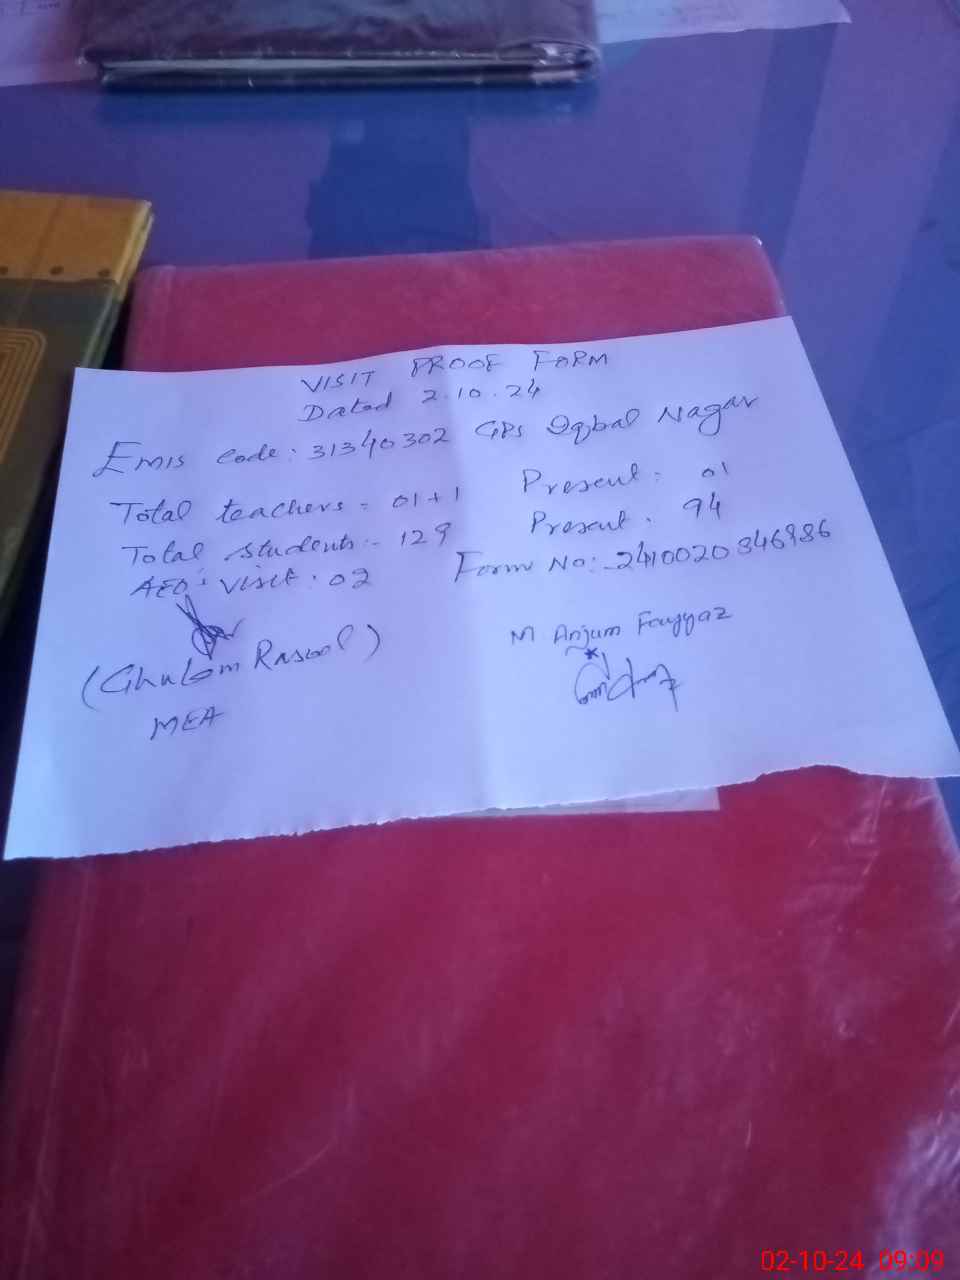 VISIT PROOF FORM
Dated 2.10.24
Emis code: 31340302 GPS Iqbal Nagar
Total teachers = 01+1 Present: 01
Total Students:- 129 Present. 94
AEO's visit: 02 Form No:-2410020346986
(Ghulam Rasool) M Anjum Fayyaz
MEA
02-10-24 09:09